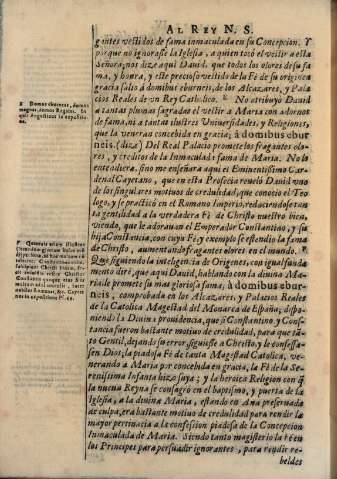 AL REY N. S.
gentes vestidos de fama inmaculada en su Concepcion. Y
porque no ignorasse la Iglesia, a quien tocò el vestir a esta
Señora; nos dize aqui David, que todos los olores de su fa-
ma, y honra, y este precioso vestido de la Fè de su origen en
gracia saliò à domibus eburneis, de los Alcazares, y Pala-
cios Reales de un Rey Catholico. No atribuyò David
a tantas plumas sagradas el vestir a Maria con adornos
de fama, ni a tantas ilustres Universidades, y Religiones,
que la veneran concebida en gracia; à domibus ebur
neis. (dize) Del Real Palacio promete los fragantes olo-
res, y creditos de la Inmaculada fama de Maria. No lo
entendiera, sino me enseñara aqui el Eminentissimo Car-
denal Cayetano, que en esta Profecia revelò David uno
de los singulares motivos de credulidad, que conociò el Teo-
logo, y se practicò en el Romano Imperio, reduciendose tan
ta gentilidad a la verdadera Fè de Christo nuestro bien,
viendo, que le adoravan el Emperador Constantino, y su
hija Constancia, con cuyo Fe, y exemplo se estendio la fama
de Christo, aumentando fragantes olores en el mundo.
Que siguiendo la inteligencia de Origenes, con igual funda
mento dirè, que aqui David, hablando con la divina Ma-
ria le promete su mas gloriosa fama, à domibus ebur
neis, comprobada en los Alcazares, y Palacios Reales
de la Catolica Magestad del Monarca de España; dispo-
niendo la Divina providencia, que si Constantino, y Cons-
tancia fueron bastante motivo de credulidad, para que tã-
to Gentil, dejando su error, siguiesse a Christo, y le confessas-
sen Dios; la piadosa Fè de tanta Magestad Catolica, ve-
nerando a Maria por concebida en gracia, la Fè de la Se-
renissima Infanta hizo suya; y la heroica Religion con q
la nueva Reyna se consagrò en el baptismo, y puerta de la
Iglesia, a la divina Maria, estando en Ana preservada
de culpa, era bastante motivo de credulidad para rendir la
mayor pertinacia a la confesion piadosa de la Concepcion
Inmaculada de Maria. Siendo tanto magisterio la Fè en
los Principes para persuadir ignorantes, para rendir re-
beldes
Domus eburneas, domos
magnas, domos Regales.